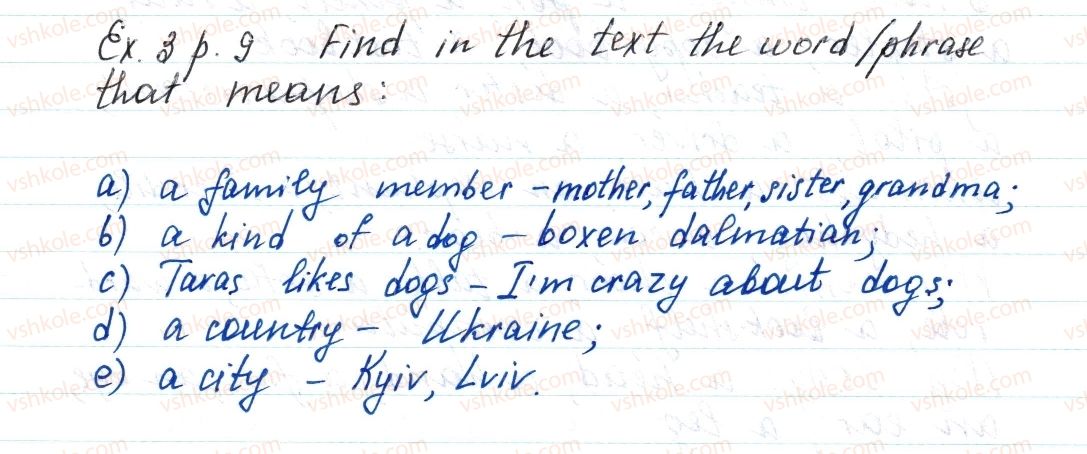 Ex. 3 p. 9 Find in the text the word/phrase
that means:
a) a family member - mother, father, sister, grandma;
b) a kind of a dog - boxen dalmatian;
c) Taras likes dogs - I'm crazy about dogs;
d) a country - Ukraine;
e) a city - Kyiv, Lviv.